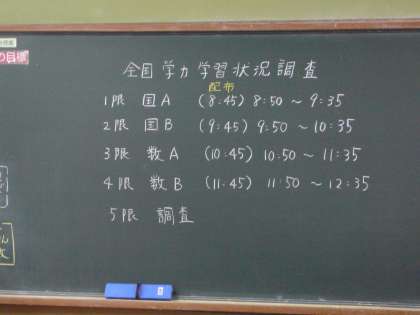 の目標
全国学力学習状況調査
配布
1限 国A (8:45) 8:50 ~ 9:35
2限 国B (9:45) 9:50 ~ 10:35
3限 数A (10:45) 10:50 ~ 11:35
4限 数B (11:45) 11:50 ~ 12:35
5限 調査